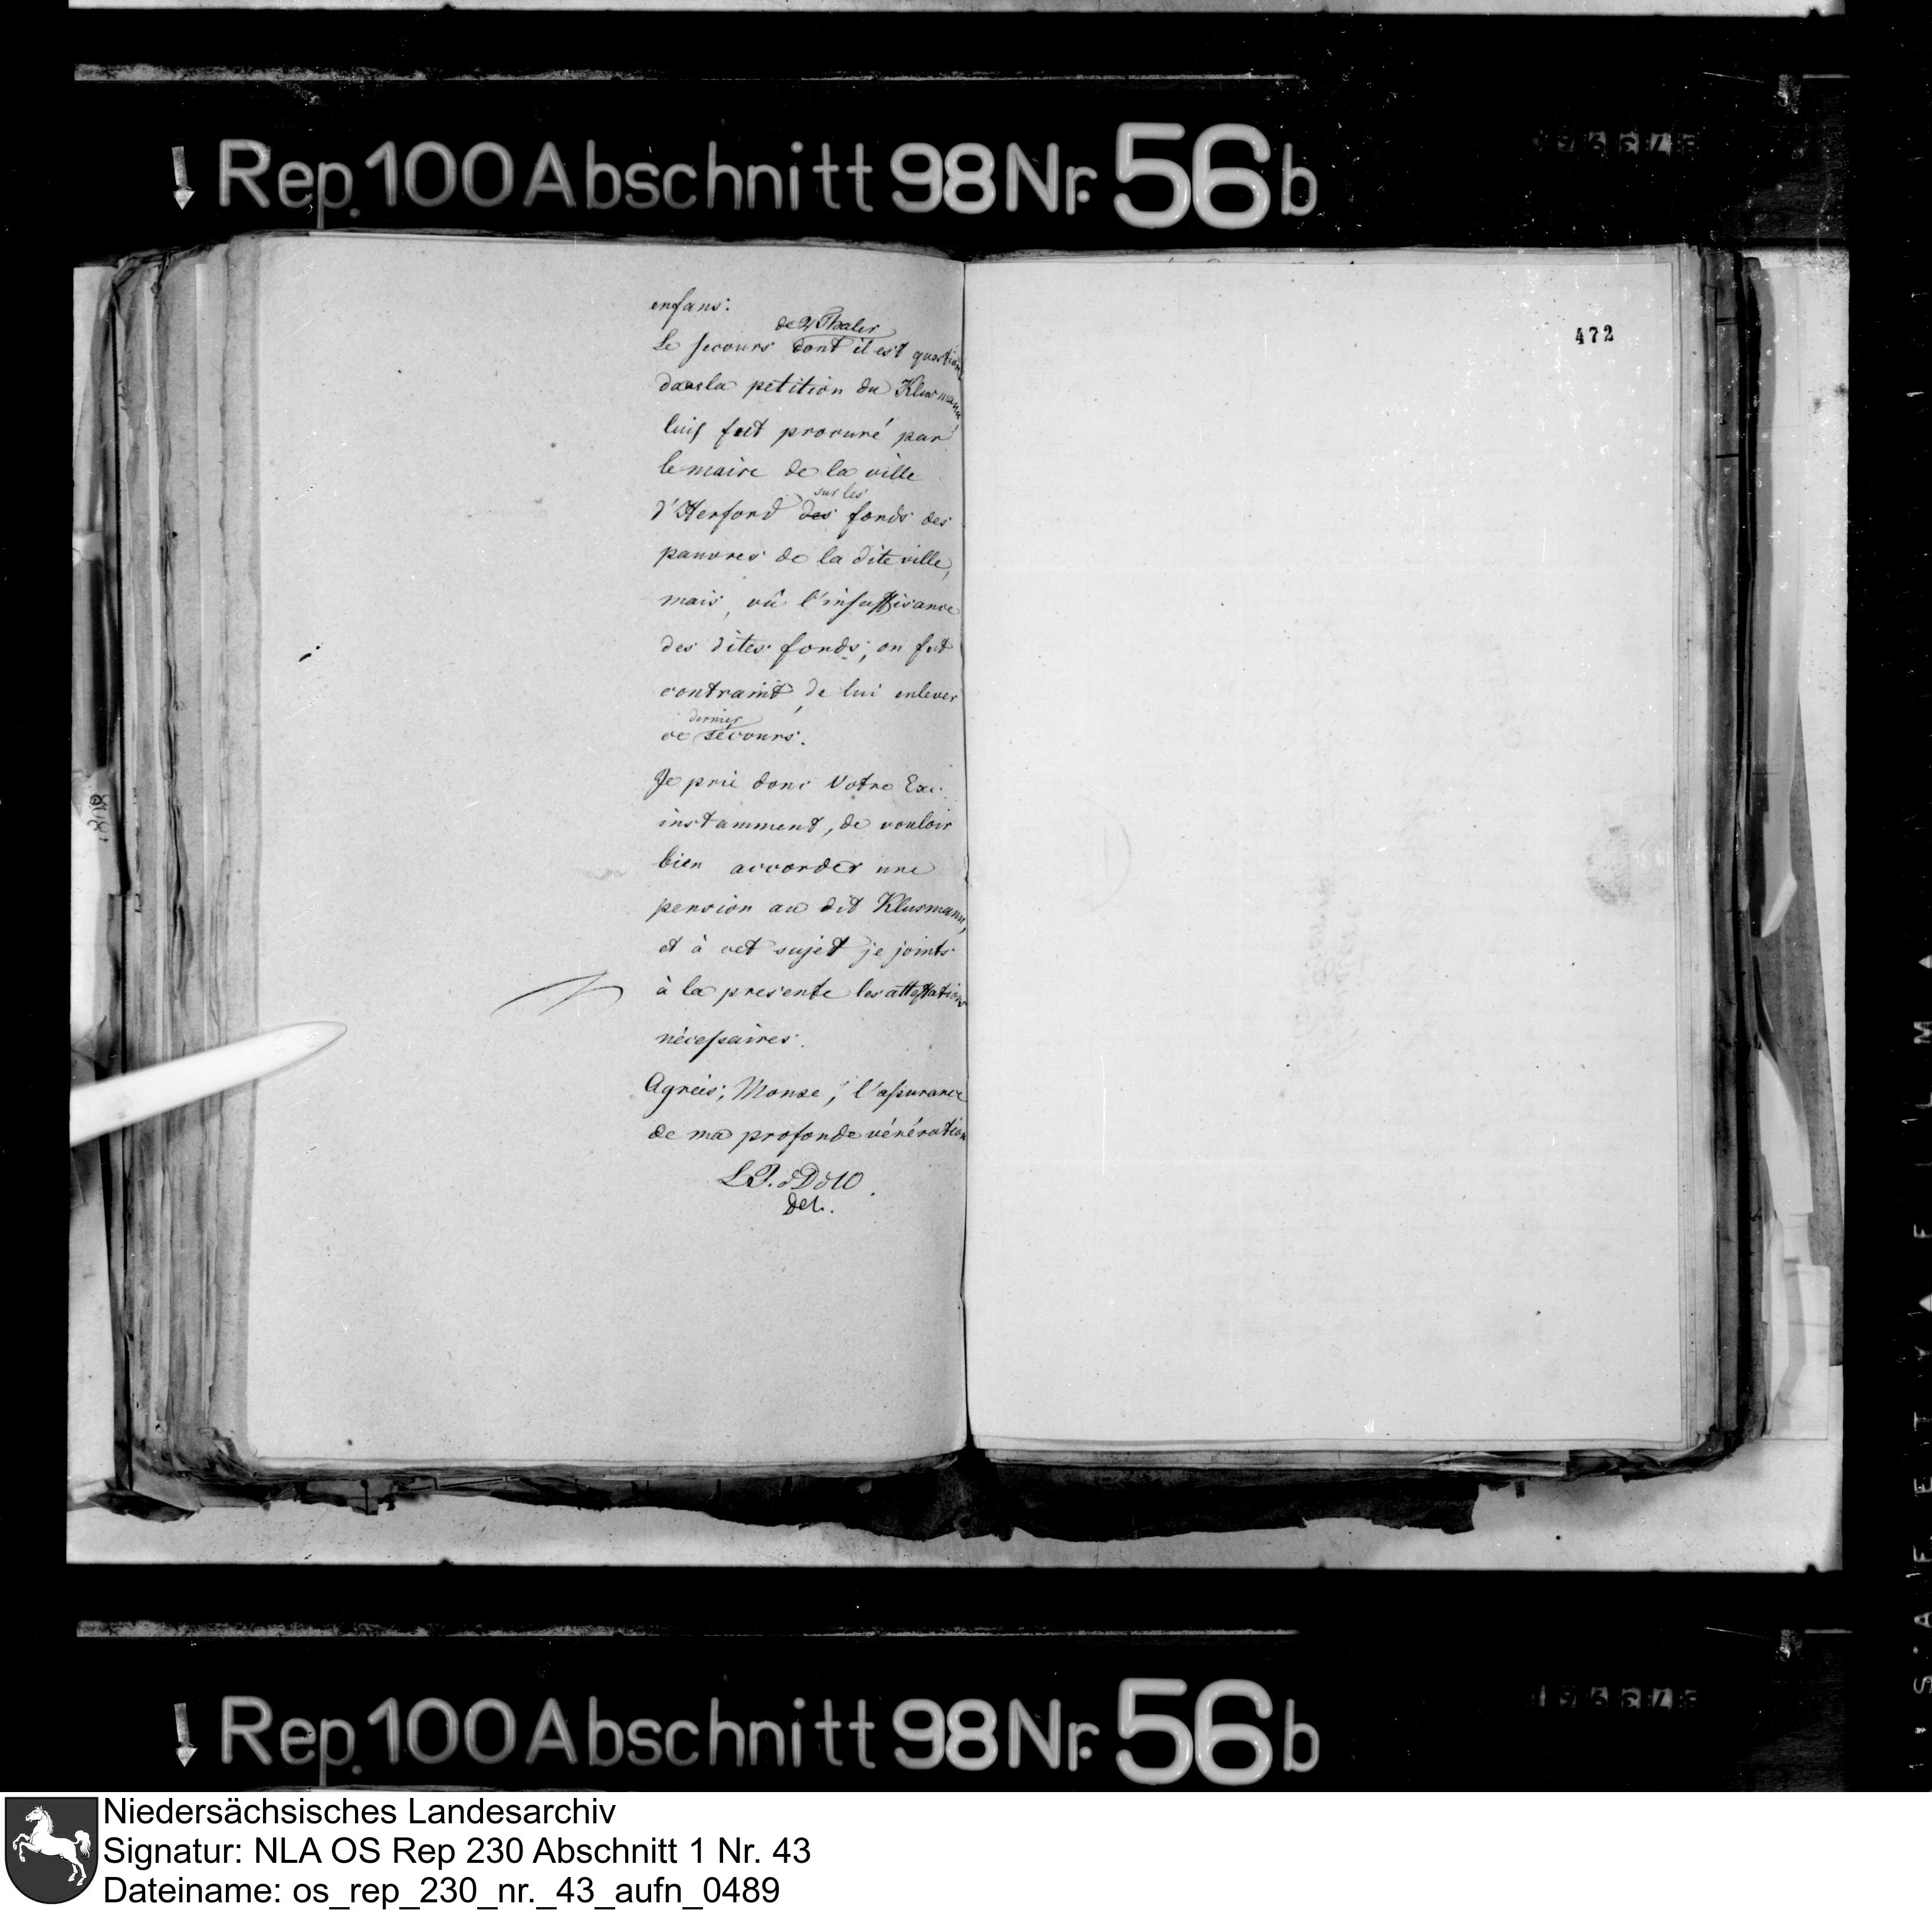 Rep. 100 Abschnitt 98 Nr. 56 b
472
enfans:
de 2 Thaler
Le secours dont il est question
dans la petition du Klusmann,
luis fut procuré par
le maire de la ville
sur les
d'Herford des fonds des
pauvres de la dite ville,
mais, vû l'insuffisance
des dites fonds, on fut
contraint, de lui enlever
dernier
ce secours.
Je prie donc Votre Exc.
instamment, de vouloir
bien accorder une
pension au dit Klusmann,
et à cet sujet je joints
à la presente les attestations
nécessaires.
Agréés, Monse, l'assurance
de ma profonde vénération
Rep. 100 Abschnitt 98 Nr. 56 b
Niedersächsisches Landesarchiv
Signatur: NLA OS Rep 230 Abschnitt 1 Nr. 43
Dateiname: os_rep_230_nr._43_aufn_0489